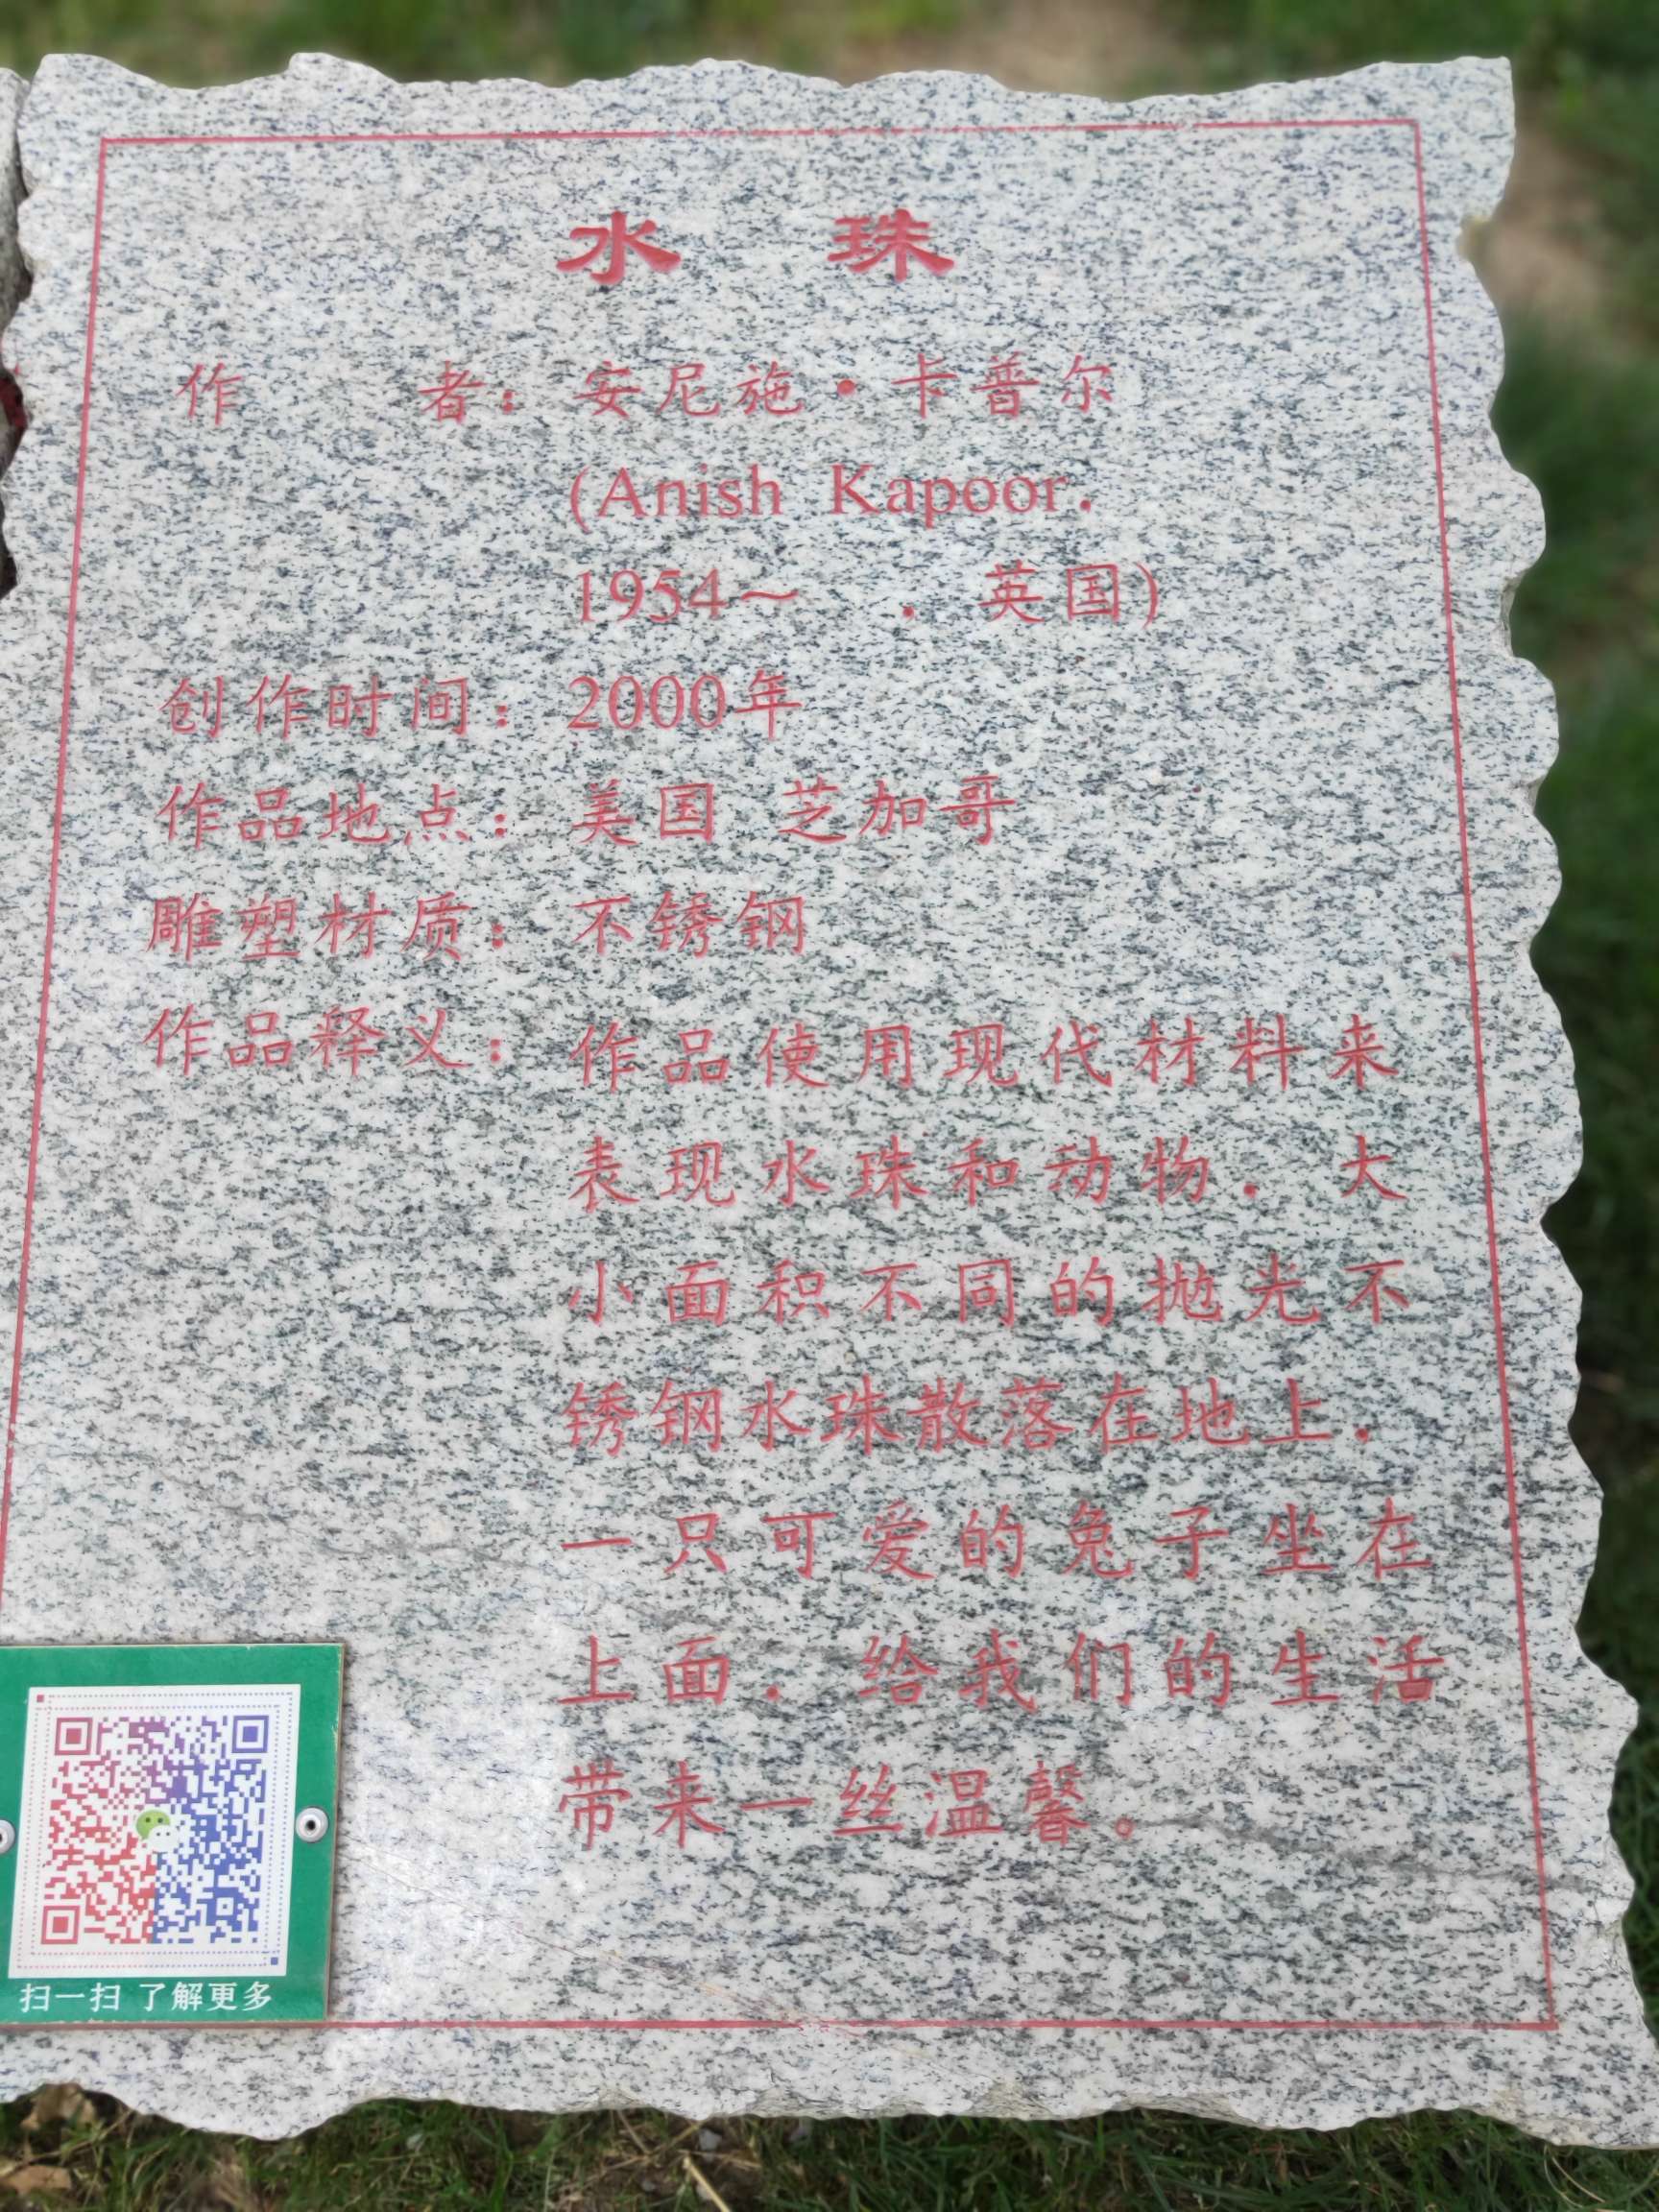 水 珠
作 者：安尼施·卡普尔
(Anish Kapoor.
1954～ . 英国)
创作时间：2000年
作品地点：美国 芝加哥
雕塑材质：不锈钢
作品释义：作品使用现代材料来
表现水珠和动物. 大
小面积不同的抛光不
锈钢水珠散落在地上.
一只可爱的兔子坐在
上面. 给我们的生活
带来一丝温馨。
扫一扫 了解更多